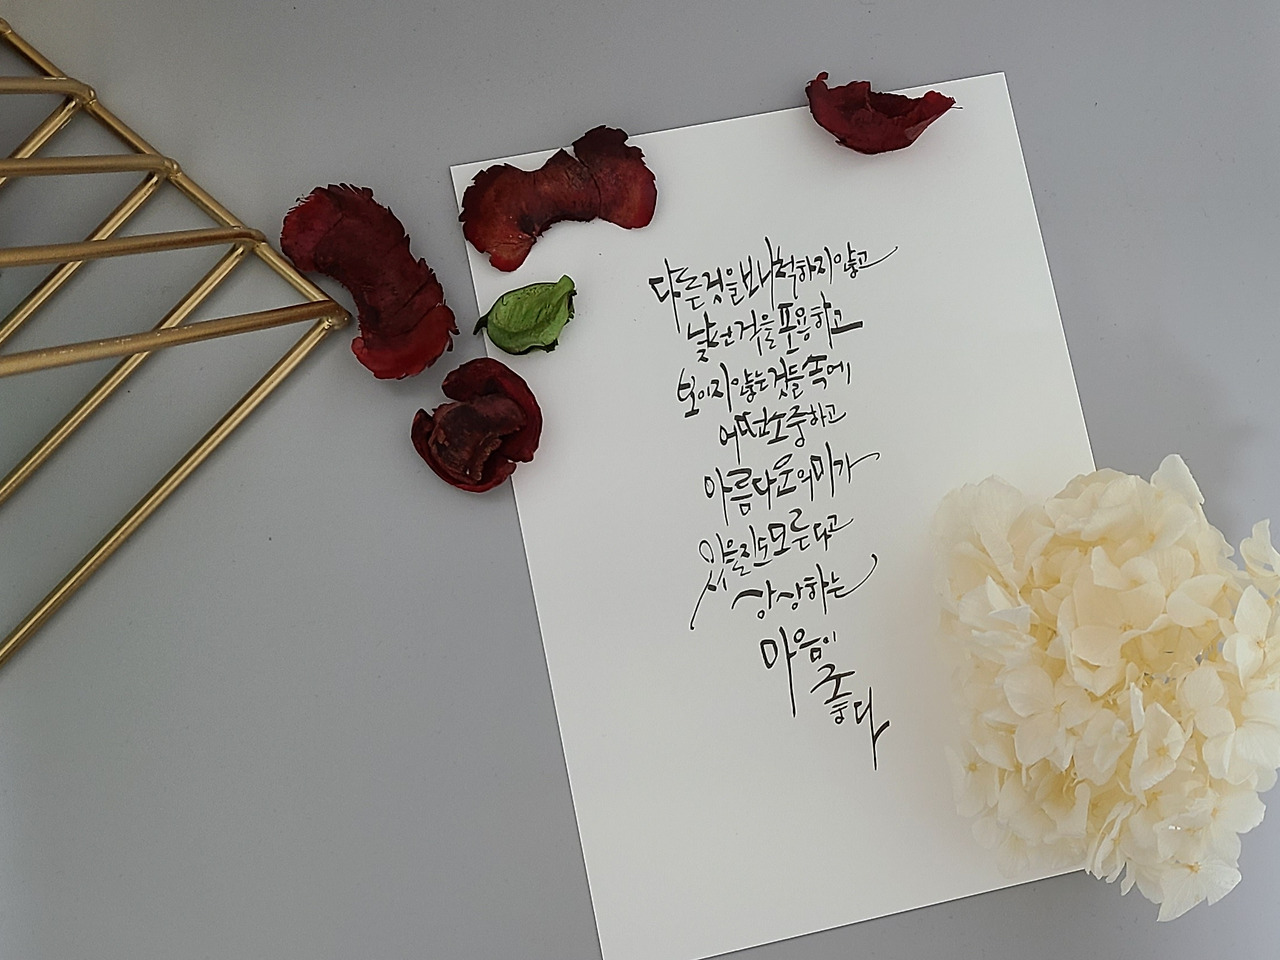 다른것을보나척하지않고
낯선것을포용하고
보이지않는것들속에
어떤소중하고
아름다운의미가
있을지도모른다고
상상하는
마음이
좋다